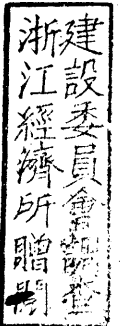 建設委員會調查
浙江經濟所贈閱